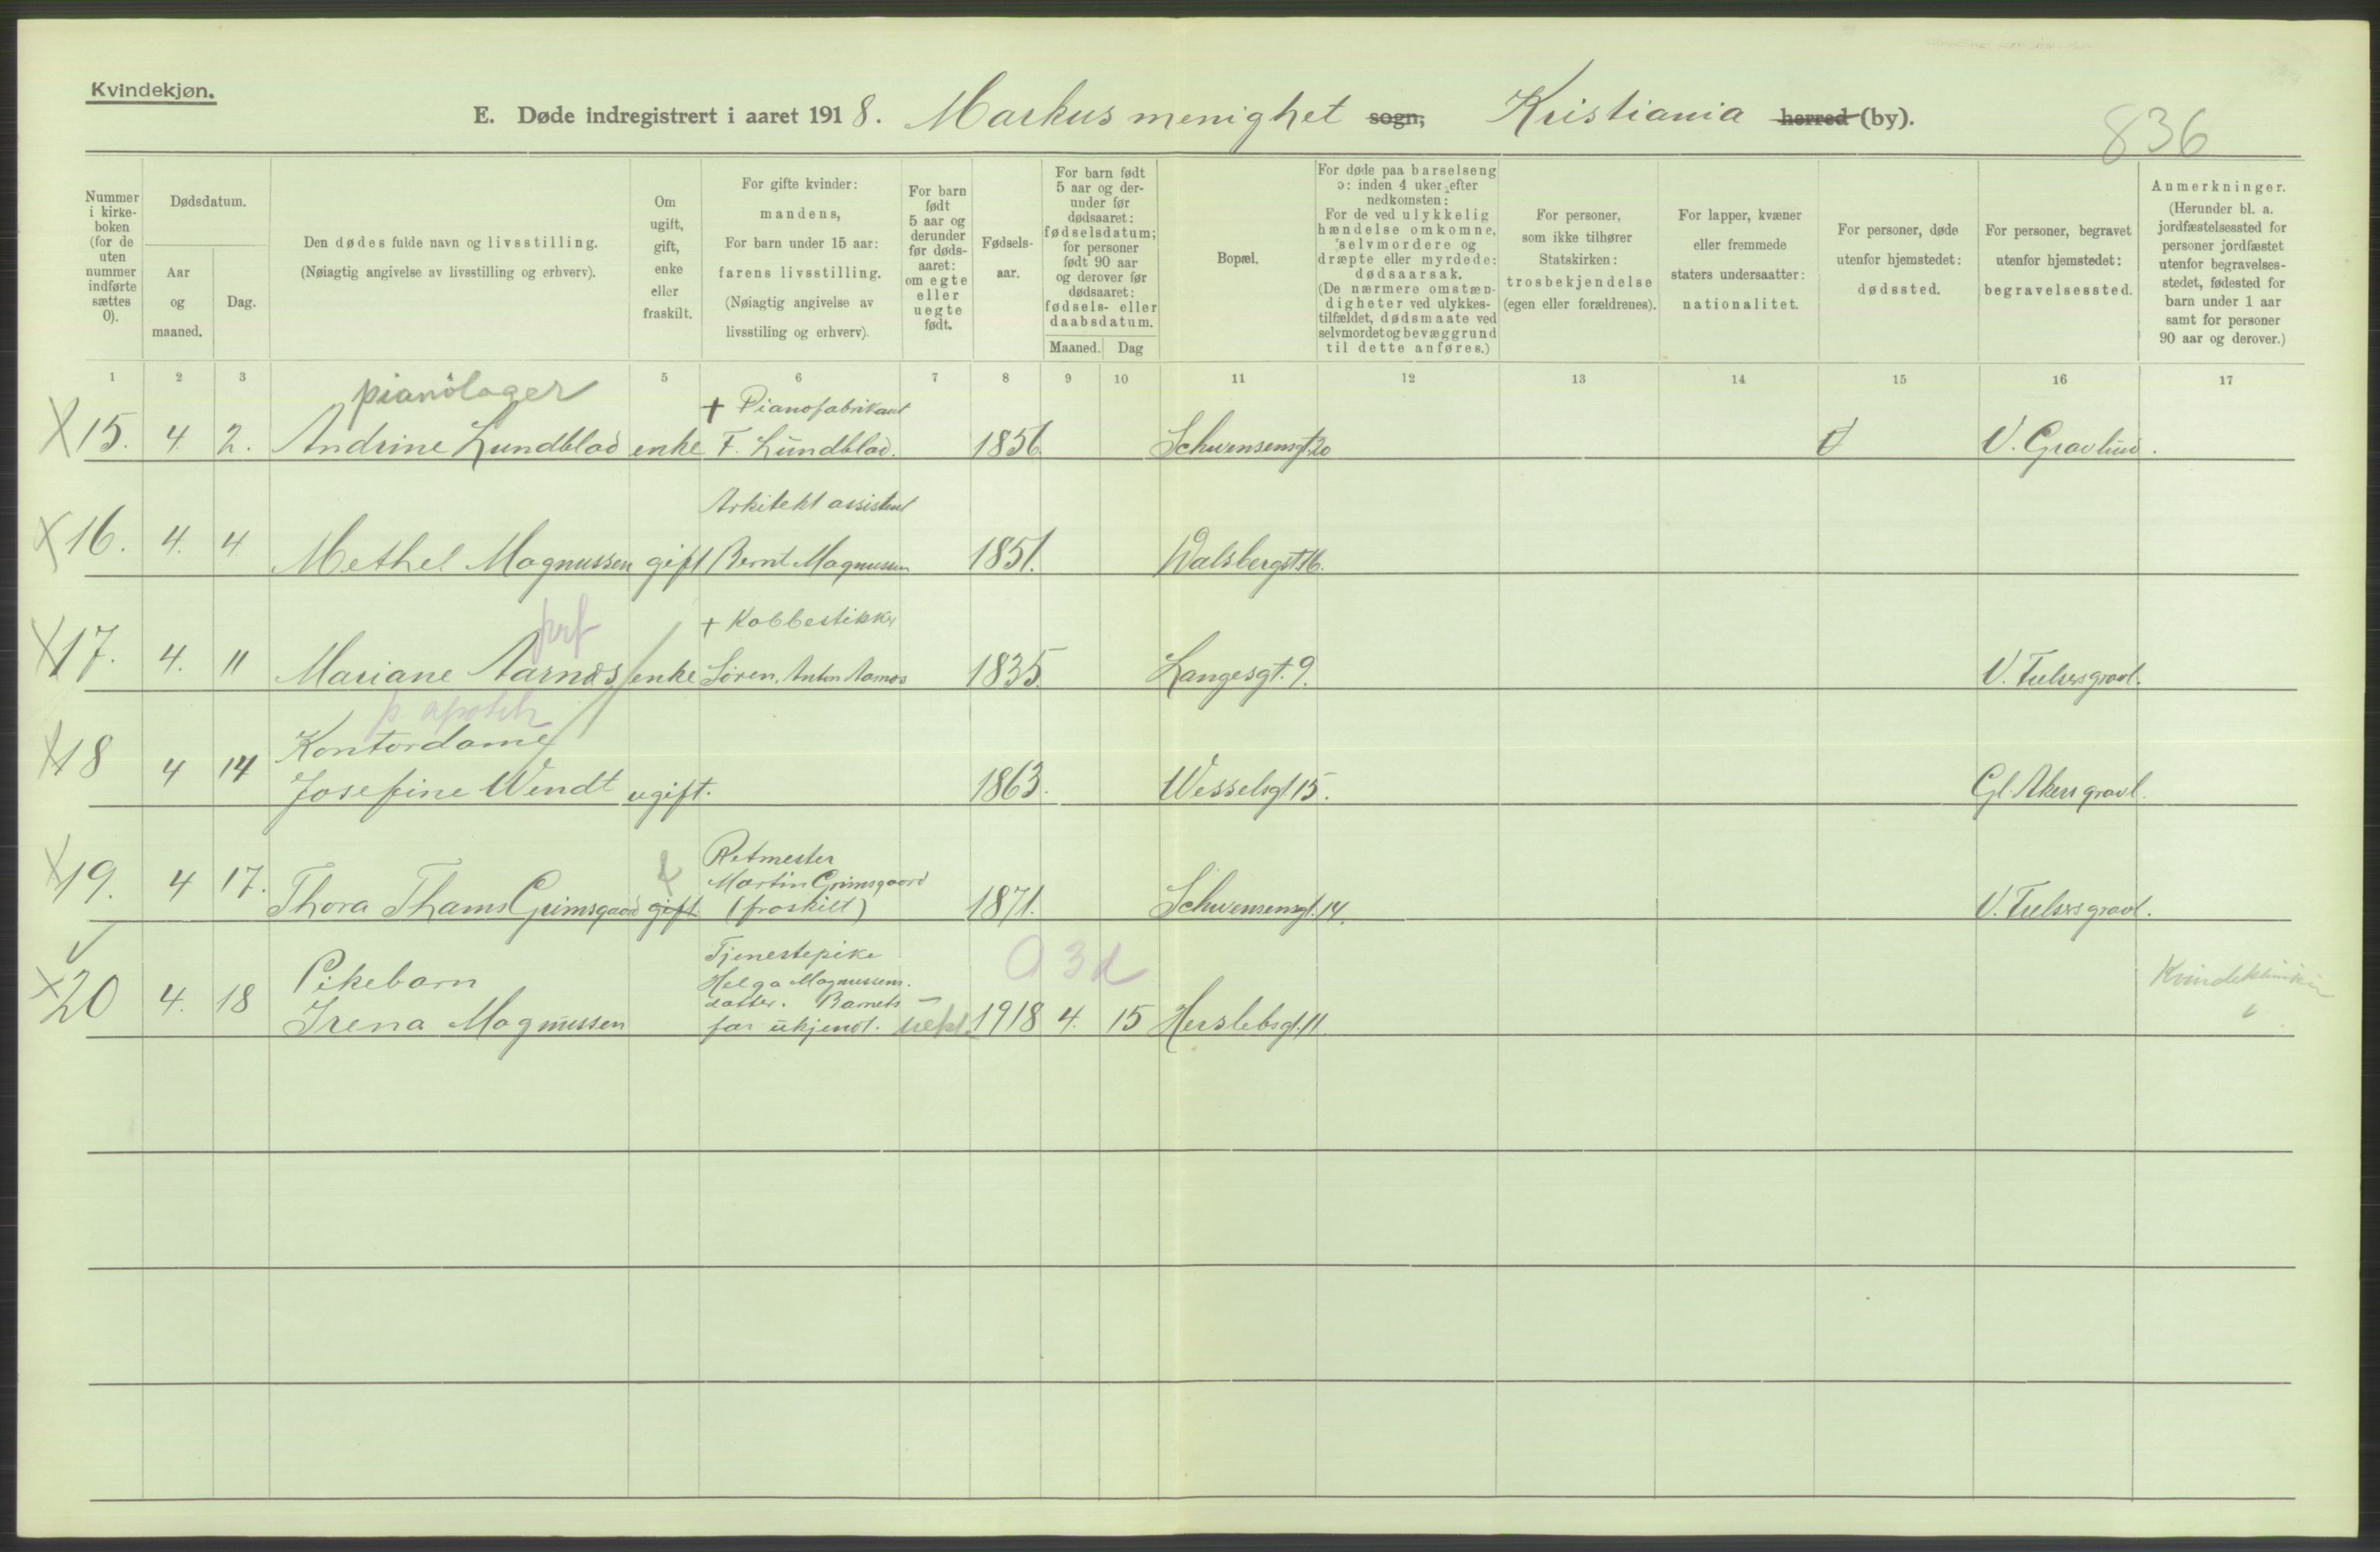 Kvindekjøn.
E. Døde indregistrert i aaret 1918. Markus menighet sogn, Kristiania herred (by).
836
Nummer i kirkeboken (for de uten nummer indførte sættes 0).
Dødsdatum.
Aar og maaned.
Dag.
Den dødes fulde navn og livsstilling.
(Nøiagtig angivelse av livsstilling og erhverv).
Om ugift, gift, enke eller fraskilt.
For gifte kvinder: mandens,
For barn under 15 aar: farens livsstilling.
(Nøiagtig angivelse av livsstiling og erhverv).
For barn født 5 aar og derunder før dødsaaret: om egte eller uegte født.
Fødselsaar.
For barn født 5 aar og derunder før dødsaaret: fødselsdatum; for personer født 90 aar og derover før dødsaaret: fødsels- eller daabsdatum.
Maaned. Dag
Bopæl.
For døde paa barselseng ɔ: inden 4 uker efter nedkomsten:
For de ved ulykkelig hændelse omkomne, selvmordere og dræpte eller myrdede: dødsaarsak.
(De nærmere omstændigheter ved ulykkestilfældet, dødsmaate ved selvmordet og bevæggrund til dette anføres.)
For personer, som ikke tilhører Statskirken: trosbekjendelse (egen eller forældrenes).
For lapper, kvæner eller fremmede staters undersaatter: nationalitet.
For personer, døde utenfor hjemstedet: dødssted.
For personer, begravet utenfor hjemstedet: begravelsessted.
Anmerkninger.
(Herunder bl. a. jordfæstelsessted for personer jordfæstet utenfor begravelsesstedet, fødested for barn under 1 aar samt for personer 90 aar og derover.)
1 2 3 4 5 6 7 8 9 10 11 12 13 14 15 16 17
pianolager
+ Pianofabrikant
X 15. 4. 2. Andrine Lundblad enke F. Lundblad. 1856. Schwensensgt. 20 V. Gravlund.
Arkitekt assistent
X 16. 4. 4 Methel Magnussen gift Bernt Magnussen 1851. Walsbergst. 16.
+ Kobbestikker
X 17. 4. 11 Mariane Aarnæs enke Søren Anton Aarnæs 1835. Langesgt. 9. V. Frelsersgravl.
p. apothek
Kontordame
X 18 4 14 Josefine Wendt ugift. 1863. Wesselsgt. 15. Gl. Akers gravl.
Ritmester
Martin Grimsgaard
X 19. 4 17. Thora Thams Grimsgaard gift f (fraskilt) 1871. Schwensensgt. 14. V. Frelsersgravl.
Tjenestepike
Pikebarn Helga Magnussens 0 3 d Kvindeklinikken
datter. Barnets
X 20 4. 18 Irena Magnussen far ukjendt. uekt. 1918 4. 15 Herslebsgt. 11.